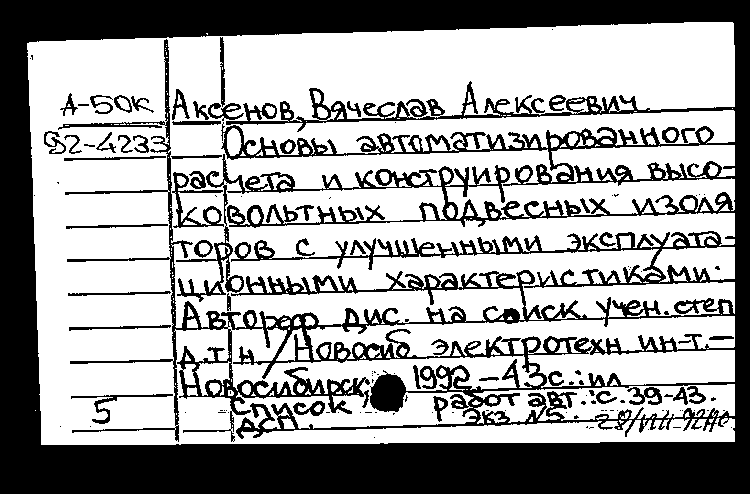 А-50к Аксенов, Вячеслав Алексеевич.
92-4233 Основы автоматизированного
расчета и конструирования высо-
ковольтных подвесных изоля
торов с улучшенными эксплуата-
ционными характеристиками:
Автореф. дис. на соиск. учен. степ
д.т.н. / Новосиб. электротехн. ин-т.–
Новосибирск, 1992.–43с.:ил
5 Список работ авт.:с.39-43.
ДСП. Экз N5. 28/VIII-92